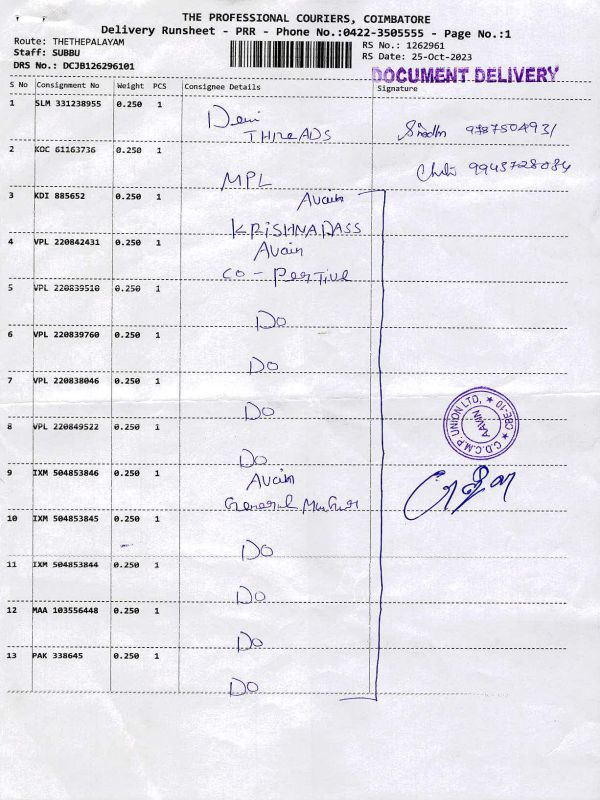 THE PROFESSIONAL COURIERS, COIMBATORE
Delivery Runsheet - PRR - Phone No.:0422-3505555 - Page No.:1
Route: THETHEPALAYAM
RS No.: 1262961
Staff: SUBBU
RS Date: 25-Oct-2023
DRS No.: DCJB126296101
DOCUMENT DELIVERY
S No Consignment No Weight PCS Consignee Details Signature
1 SLM 331238955 0.250 1
Devi
THREADS
9787504931
2 KDC 61163736 0.250 1
MPL
9943728084
3 KDI 885652 0.250 1
Avain
KRISHNADASS
4 VPL 220842431 0.250 1
Avain
CO-PERTIVE
5 VPL 220839510 0.250 1
Do
6 VPL 220839760 0.250 1
Do
7 VPL 220838046 0.250 1
Do
8 VPL 220849522 0.250 1
Do
C.D.C.C.M.P. UNION LTD, CBE-10
9 IXM 504853846 0.250 1
Avain
General
10 IXM 504853845 0.250 1
Do
11 IXM 504853844 0.250 1
Do
12 MAA 103556448 0.250 1
Do
13 PAK 338645 0.250 1
Do